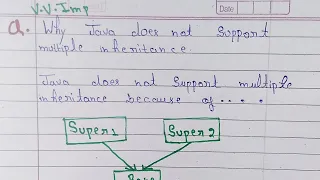 V.V.Imp
Date
Q. Why Java does not Support
multiple inheritance
Java does not Support multiple
inheritance because of....
Super1 Super2